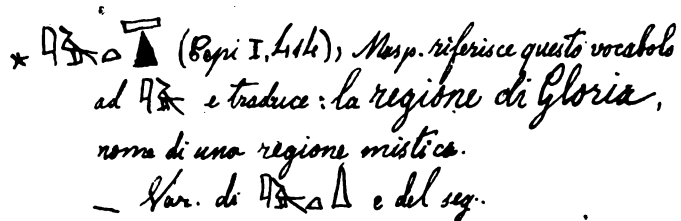 * (Pepi I, 414), Masp. riferisce questo vocabolo
ad e traduce: la regione di Gloria,
nome di una regione mistica.
_ Var. di e del seg..